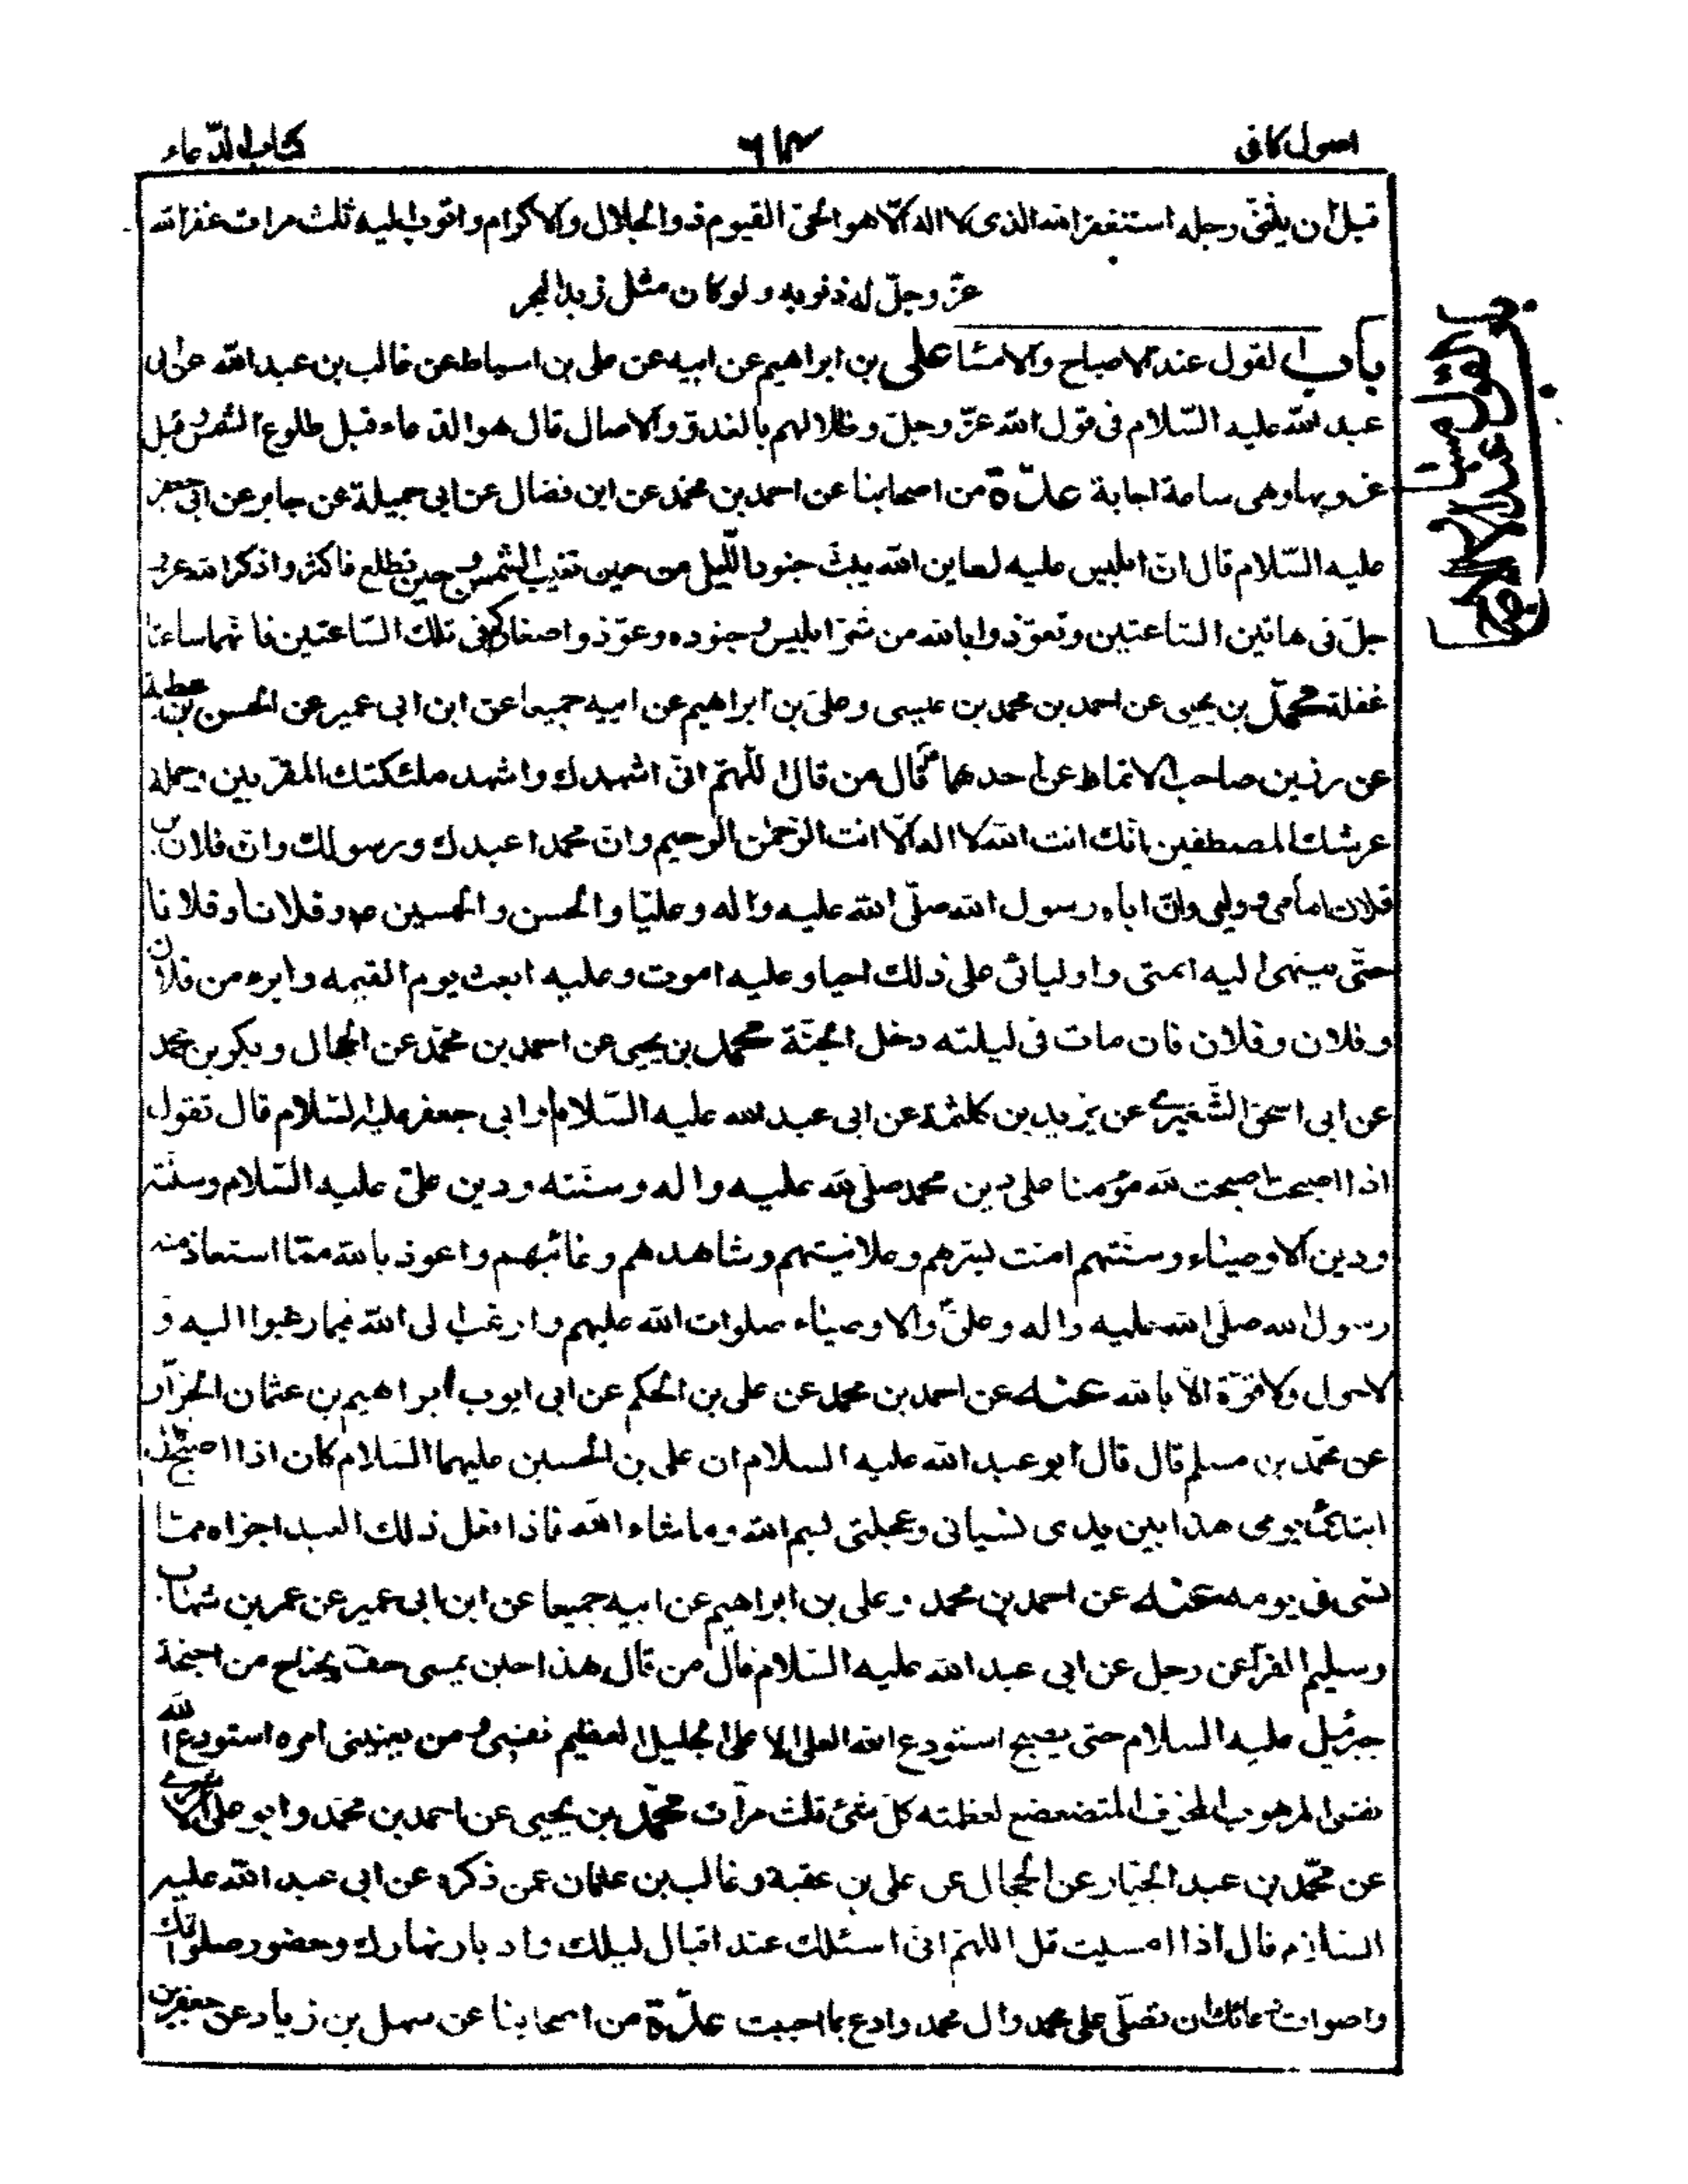 اصول کافی
۶۱۴
کتاب الدّعاء
قبل ان یثنی رجله استغفر الله الذی لا اله الّا هو الحیّ القیوم ذو الجلال والاکرام واتوب الیه ثلث مرات غفر الله
عزّ وجلّ له ذنوبه ولو کان مثل زبد البحر
باب القول عند الاصباح والامسا
باب القول عند الاصباح والامسا علی بن ابراهیم عن ابیه عن علی بن اسباط عن غالب بن عبد الله عن ابی
عبد الله علیه السّلام فی قول الله عزّ وجلّ وظلالهم بالغدوّ والاصال قال هو الدّعاء قبل طلوع الشمس وقبل
غروبها وهی ساعة اجابة عدّة من اصحابنا عن احمد بن محمّد عن ابن فضال عن ابی جمیلة عن جابر عن ابی جعفر
علیه السّلام قال انّ ابلیس علیه لعاین الله یبثّ جنود اللّیل من حین تغیب الشمس وحین تطلع فاکثروا ذکر الله عزّ و
جلّ فی هاتین السّاعتین وتعوّذوا بالله من شرّ ابلیس وجنوده وعوّذوا صغارکم فی تلك السّاعتین فانّهما ساعتا
غفلة محمّد بن یحیی عن احمد بن محمد بن عیسی وعلیّ بن ابراهیم عن ابیه جمیعا عن ابن ابی عمیر عن الحسن بن عطیة
عن رزین صاحب الانماط عن احدهما ع قال من قال اللّهمّ انّی اشهدك واشهد ملئکتك المقرّبین وحملة
عرشك المصطفین انّك انت الله لا اله الّا انت الرّحمٰن الرّحیم وانّ محمدا عبدك ورسولك وانّ فلان بن
فلان امامی وولیی وانّ اباه رسول الله صلّی الله علیه واله وعلیّا والحسن والحسین ع وفلانا وفلانا
حتّی ینتهی الیه ائمتی واولیائی علی ذلك احیا وعلیه اموت وعلیه ابعث یوم القیمه وابرء من فلان
وفلان وفلان فان مات فی لیلته دخل الجنّة محمّد بن یحیی عن احمد بن محمّد عن الحجال وبکر بن محمد
عن ابی اسحق الشّعیری عن یزید بن کلثمة عن ابی عبد الله علیه السّلام او ابی جعفر علیه السّلام قال تقول
اذا اصبحت اصبحت لله مؤمنا علی دین محمد صلی الله علیه واله وسنّته ودین علیّ علیه السّلام وسنّته
ودین الاوصیاء وسنّتهم امنت بسرّهم وعلانیتهم وشاهدهم وغائبهم واعوذ بالله ممّا استعاذ منه
رسول الله صلّی الله علیه واله وعلیّ والاوصیاء صلوات الله علیهم وارغب الی الله فیما رغبوا الیه و
لا حول ولا قوّة الّا بالله عنه عن احمد بن محمد عن علی بن الحکم عن ابی ایوب ابراهیم بن عثمان الخزّاز
عن محمّد بن مسلم قال قال ابو عبد الله علیه السلام ان علی بن الحسین علیهما السّلام کان اذا اصبح قال
ابتدئ یومی هذا بین یدی نسیانی وعجلتی بسم الله وما شاء الله فاذا فعل ذلك العبد اجزاه ممّا
نسی فی یومه عنه عن احمد بن محمد وعلی بن ابراهیم عن ابیه جمیعا عن ابن ابی عمیر عن عمر بن شهاب
وسلیم الفرّا عن رجل عن ابی عبد الله علیه السّلام قال من قال هذا حین یمسی حفّ بجناح من اجنحة
جبرئیل علیه السلام حتی یصبح استودع الله العلی الاعلی الجلیل العظیم نفسی ومن یعنینی امره استودع الله
نفسی المرهوب المخوف المتضعضع لعظمته کلّ شئ ثلث مرّات محمّد بن یحیی عن احمد بن محمّد وابو علی الاشعری
عن محمّد بن عبد الجبّار عن الحجال عن علی بن عقبة وغالب بن عثمان عمن ذکره عن ابی عبد الله علیه
السّلام قال اذا امسیت قل اللهمّ انی اسئلك عند اقبال لیلك وادبار نهارك وحضور صلواتك
واصوات دعائك ان تصلّی علی محمد وال محمد وادع بما احببت عدّة من اصحابنا عن سهل بن زیاد عن جعفر بن